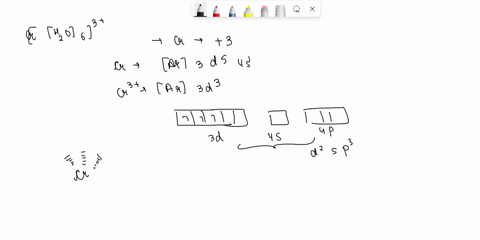 [Cr [H2O]6]3+
→ Cr → +3
Cr → [Ar] 3d5 4s1
Cr3+ → [Ar] 3d3
3d 4s 4p
d2sp3
Cr